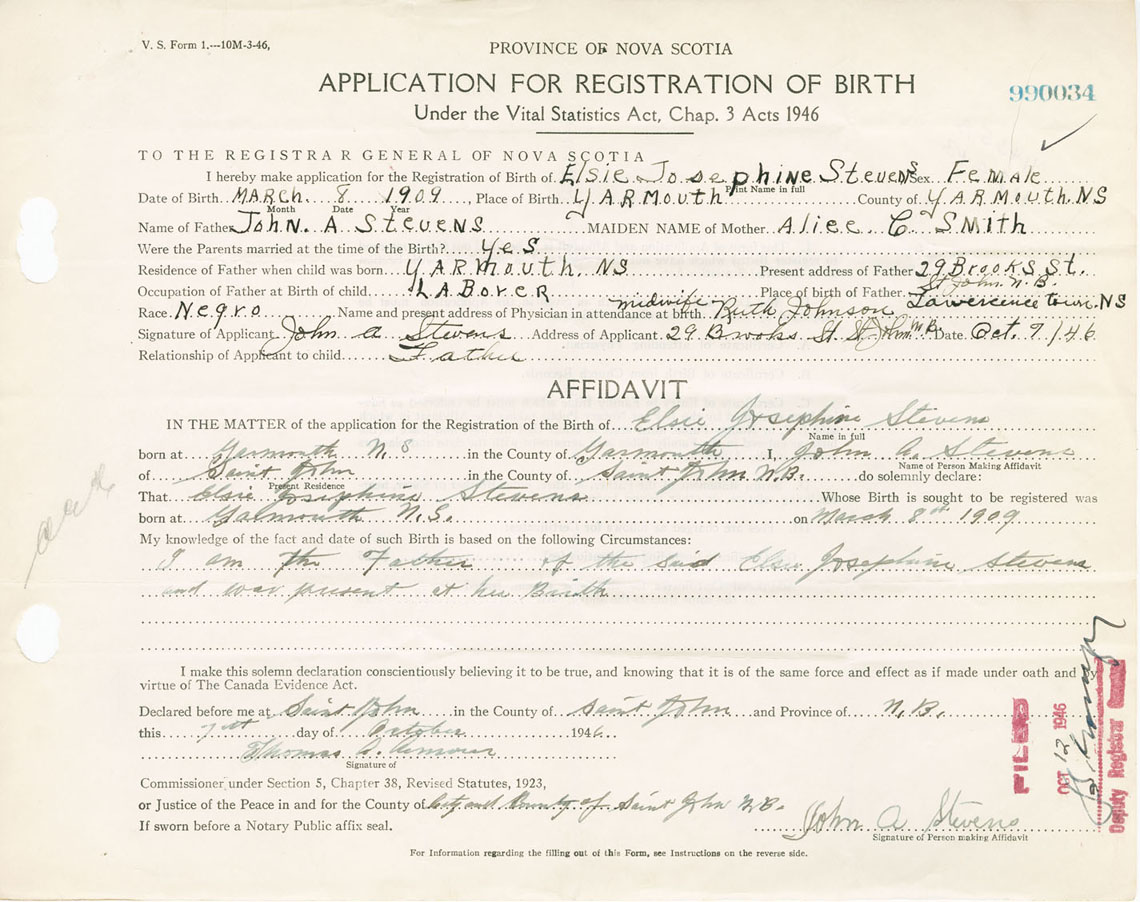 V. S. Form 1.---10M-3-46,
PROVINCE OF NOVA SCOTIA
APPLICATION FOR REGISTRATION OF BIRTH
990034
Under the Vital Statistics Act, Chap. 3 Acts 1946
TO THE REGISTRAR GENERAL OF NOVA SCOTIA
I hereby make application for the Registration of Birth of Elsie Josephine Stevens Sex Female
Print Name in full
Date of Birth MARCH 8 1909, Place of Birth YARMOUTH County of YARMOUTH, NS
Month Date Year
Name of Father JOHN. A STEVENS MAIDEN NAME of Mother Alice C SMITH
Were the Parents married at the time of the Birth? Yes
Residence of Father when child was born YARMOUTH, NS Present address of Father 29 BROOKS St.
St John N.B.
Occupation of Father at Birth of child LABORER Place of birth of Father Lawerencetown. NS
Race Negro Name and present address of Physician in attendance at birth midwife Ruth Johnson
Signature of Applicant John A Stevens Address of Applicant 29 Brooks St St John N.B. Date Oct. 9/46
Relationship of Applicant to child Father
AFFIDAVIT
IN THE MATTER of the application for the Registration of the Birth of Elsie Josephine Stevens
Name in full
born at Yarmouth N.S in the County of Yarmouth I, John A. Stevens
Name of Person Making Affidavit
of Saint John in the County of Saint John N.B. do solemnly declare:
Present Residence
That Elsie Josephine Stevens Whose Birth is sought to be registered was
born at Yarmouth N.S. on March 8th 1909
My knowledge of the fact and date of such Birth is based on the following Circumstances:
I am the Father of the said Elsie Josephine Stevens
and was present at her Birth
I make this solemn declaration conscientiously believing it to be true, and knowing that it is of the same force and effect as if made under oath and by
virtue of The Canada Evidence Act.
Declared before me at Saint John in the County of Saint John and Province of N.B.
this day of October 1946
Thomas A.
Signature of
Commissioner under Section 5, Chapter 38, Revised Statutes, 1923,
or Justice of the Peace in and for the County of City and County of Saint John N.B.
If sworn before a Notary Public affix seal.
John A Stevens
Signature of Person making Affidavit
For Information regarding the filling out of this Form, see Instructions on the reverse side.
FILED
OCT 12 1946
Deputy Registrar General